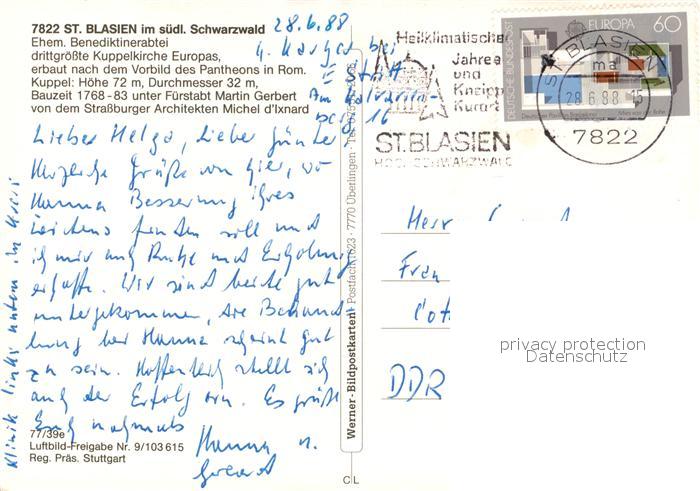 7822 ST. BLASIEN im südl. Schwarzwald
Ehem. Benediktinerabtei
drittgrößte Kuppelkirche Europas,
erbaut nach dem Vorbild des Pantheons in Rom.
Kuppel: Höhe 72 m, Durchmesser 32 m,
Bauzeit 1768-83 unter Fürstabt Martin Gerbert
von dem Straßburger Architekten Michel d'Ixnard
28.6.88
bei
16
Lieber Helga, lieber Günter,
Herzliche Grüße von hier, wo
Hanna Besserung ihres
Leidens finden soll und
ich mir auf Ruhe und Erholung
hoffe. Wir sind beide gut
untergekommen, die Behand-
lung bei Hanna scheint gut
zu sein. Hoffentlich stellt sich
auch der Erfolg ein. Es grüßt
Euch nochmals
Hanna u.
Klinik links unten im Kreis
77/39e
Luftbild-Freigabe Nr. 9/103615
Reg. Präs. Stuttgart
Werner-Bildpostkarten · Postfach 1623 · 7770 Überlingen · Tel.
CL
Heilklimatischer
Jahre
und
Kneipp
Kurort
ST.BLASIEN
HOCHSCHWARZWALD
DEUTSCHE BUNDESPOST
EUROPA 60
ST. BLASIEN
ma
28.6.88 15
7822
Herr
Frau
DDR
privacy protection
Datenschutz